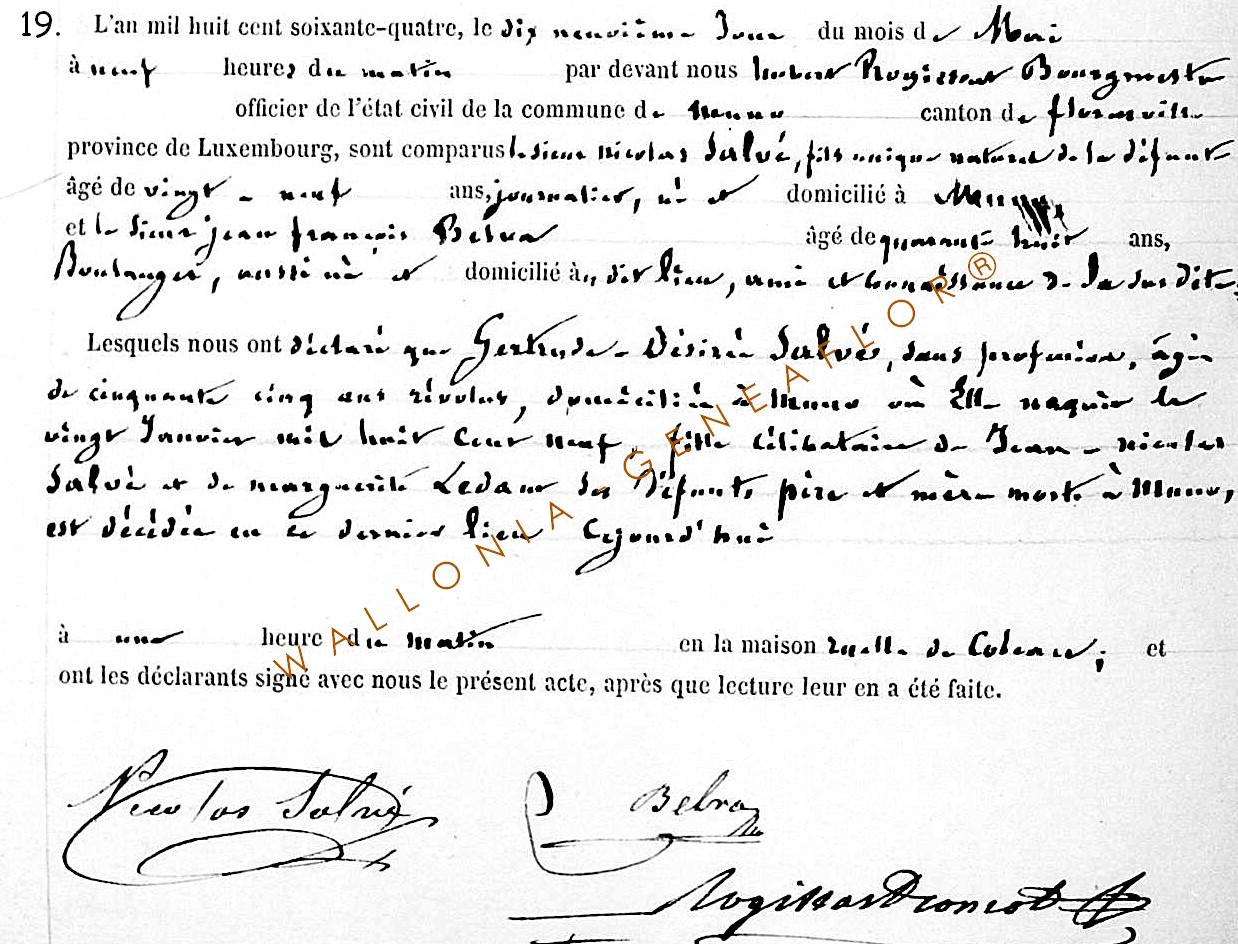 19. L'an mil huit cent soixante-quatre, le dix neuvième Jour du mois de Mai
à neuf heures du matin par devant nous hubert Rogissart Bourgmestre
officier de l'état civil de la commune de muno canton de florenville
province de Luxembourg, sont comparus le sieur nicolas Salvé, fils unique naturel de la défunte
âgé de vingt - neuf ans, journalier, né et domicilié à Muno
et le sieur jean françois Belva âgé de quarante huit ans,
Boulanger, aussi né et domicilié au dit lieu, ami et connaissance de la sus dite.
Lesquels nous ont déclaré que Gertrude - Désirée Salvé, sans profession, âgée
de cinquante cinq ans révolus, domiciliée à Muno où Elle naquit le
vingt Janvier mil huit cent neuf, fille célibataire de Jean - nicolas
Salvé et de marguerite Ledant des Défunts père et mère morts à Muno,
est décédée en ce dernier lieu Cejourd'hui
à une heure du matin en la maison ruelle de ; et
ont les déclarants signé avec nous le présent acte, après que lecture leur en a été faite.
Nicolas Salvé Belva
Rogissart
WALLONIA GENEAFLOR ®